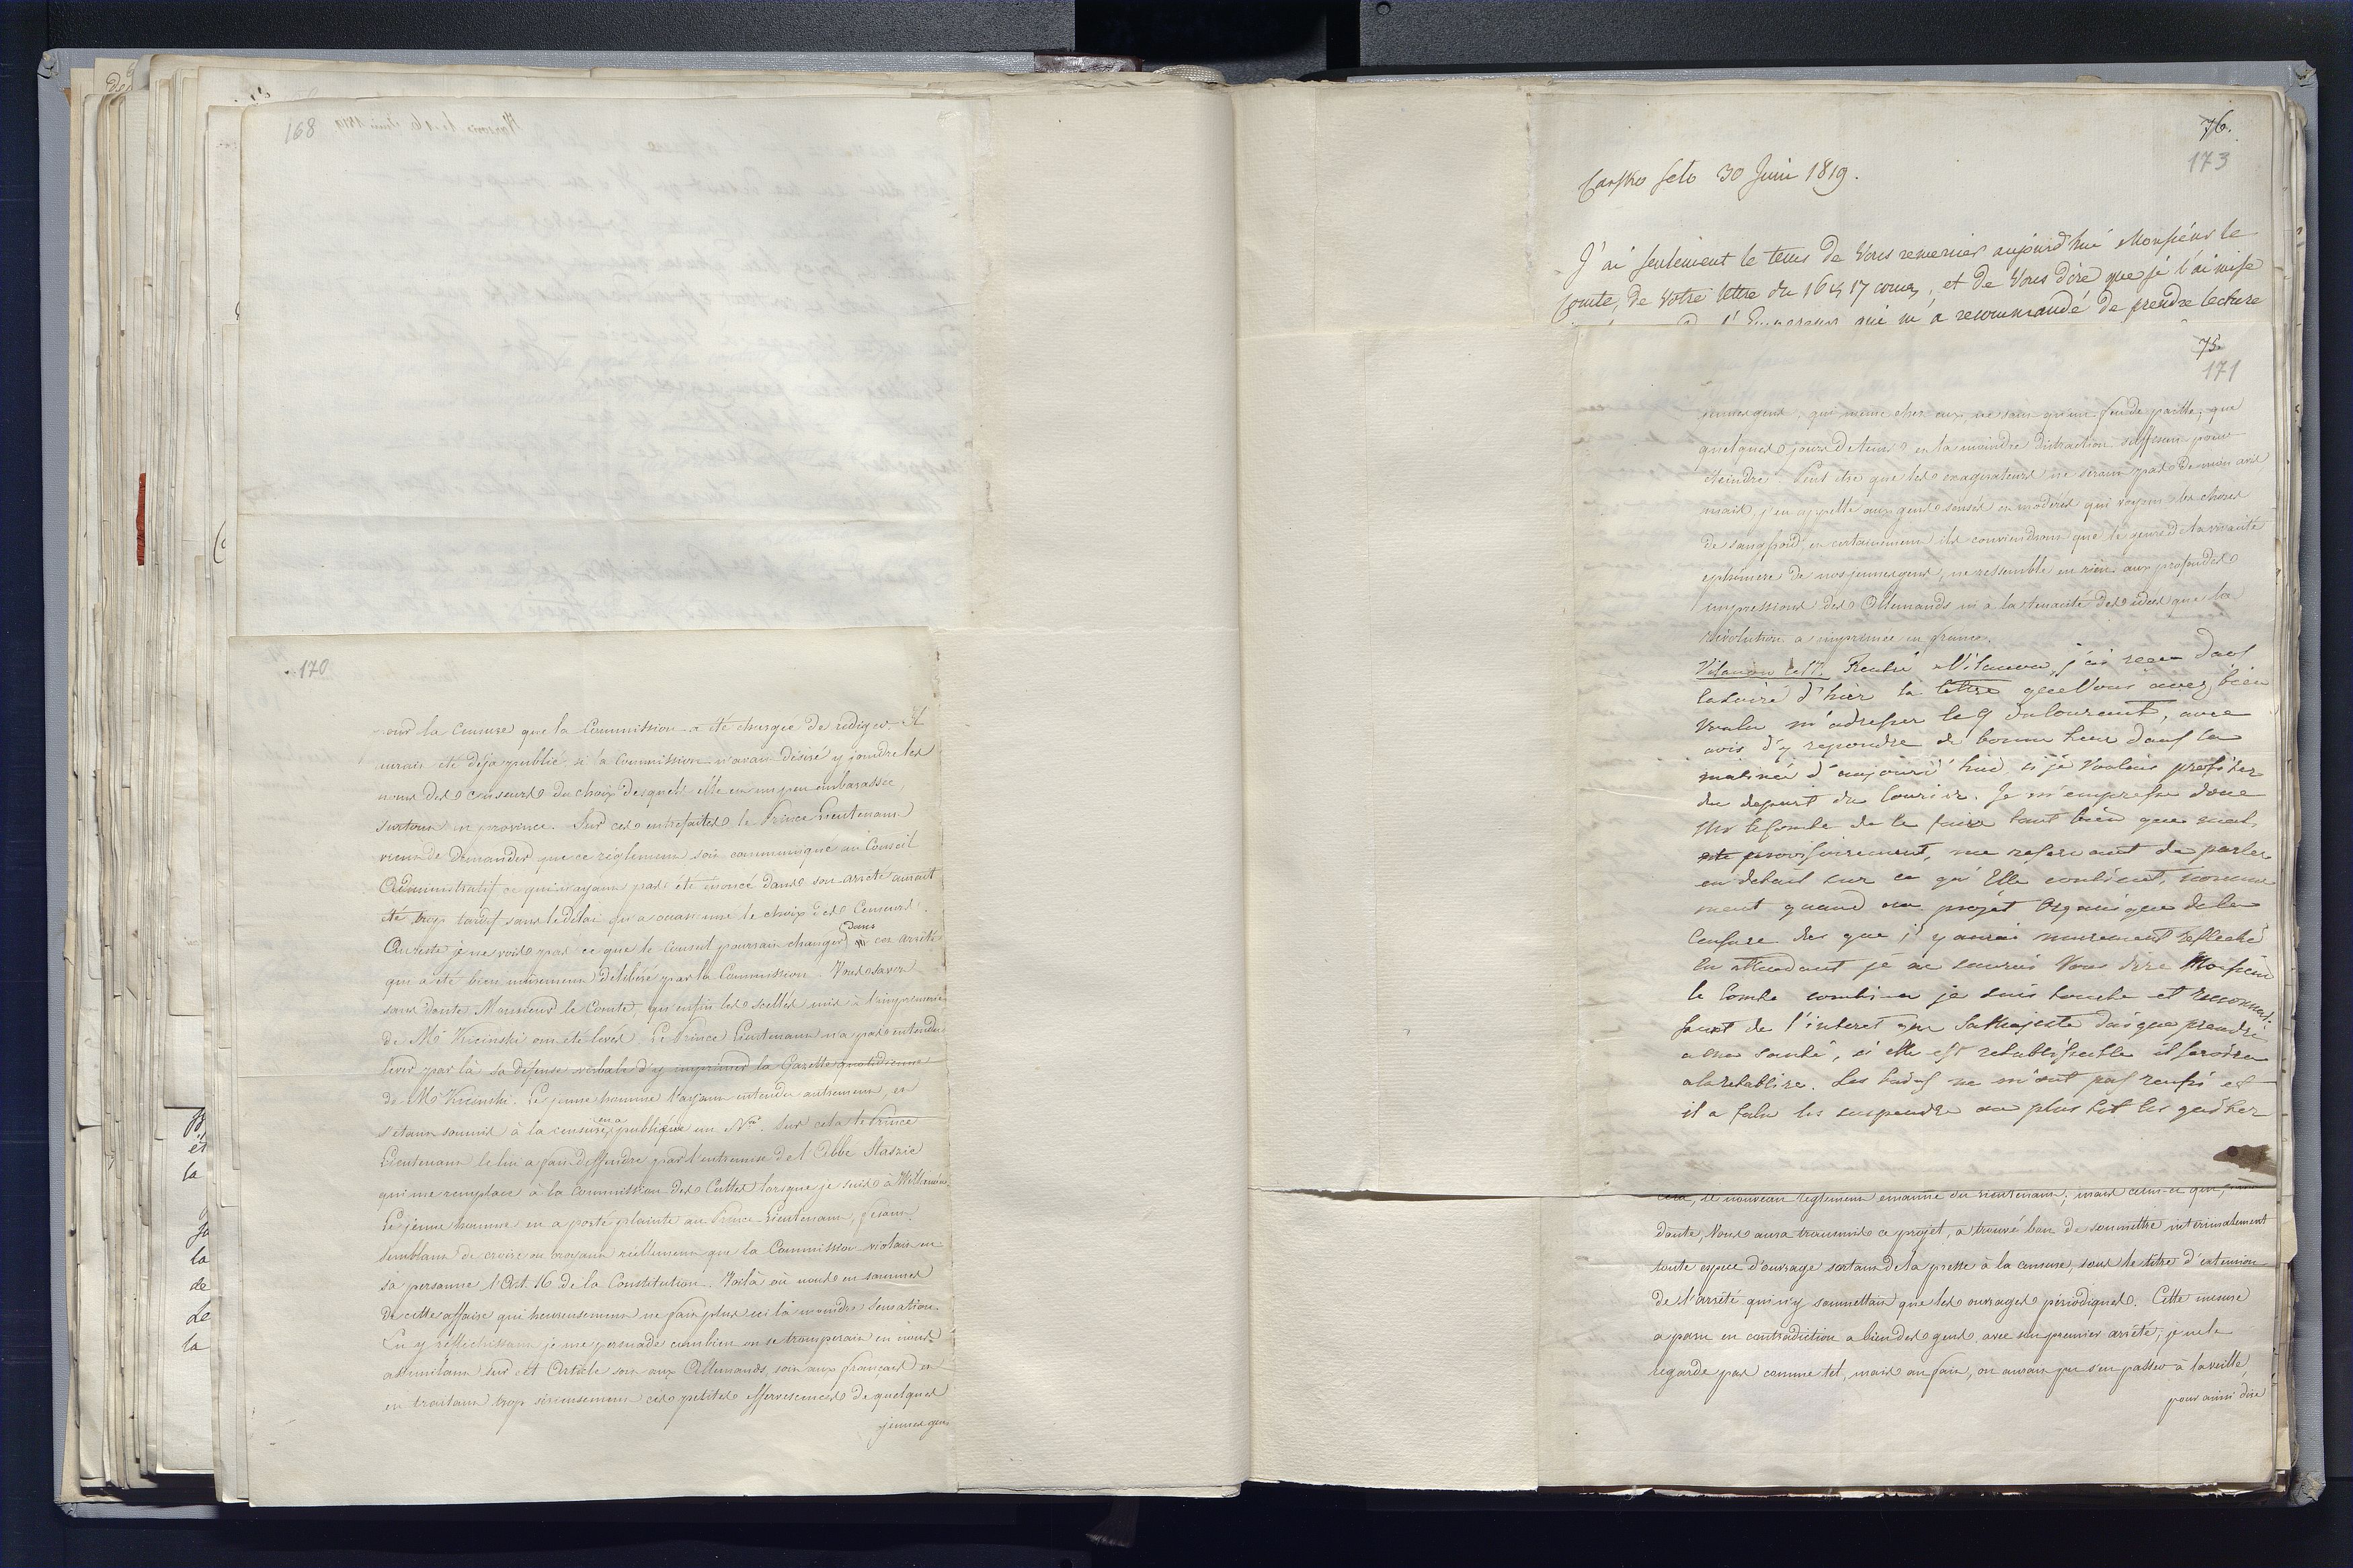 168
170
sur la Censure que la Commission a été chargée de rediger. Il
aurait été déja publié, si la Commission n'avait désiré y joindre les
noms des censeurs du choix desquels elle est un peu embarassée,
surtout en province. Sur ces entrefaites le Prince Lieutenant
vient de demander que ce réglement soit communiqué au Conseil
Administratif ce qui n'ayant pas été énoncé dans son arreté aurait
été trop tardif sans le délai qu'a occasionné le choix des Censeurs.
Au reste je ne vois pas ce que le Conseil pourrait changer dans cet arrêté
qui a été bien murement délibéré par la Commission. Vous savez
sans doute Monsieur le Comte, qu'enfin les scellés mis à l'imprimerie
de Mr Kicinski ont été levés. Le Prince Lieutenant n'a pas entendu
lever par là sa défense verbale d'y imprimer la Gazette quotidienne
de Mr Kicinski. Le jeune homme l'ayant entendu autrement, et
s'étant soumis à la censure, en a publié un No. Sur cela le Prince
Lieutenant le lui a fait deffendre par l'entremise de l'Abbé Staszic
qui me remplace à la Commission des Cultes lorsque je suis à Willanow.
Le jeune homme en a porté plainte au Prince Lieutenant, fesant
semblant de croire ou croyant réellement que la Commission violait en
sa personne l'Art. 16 de la Constitution. Voilà où nous en sommes
de cette affaire qui heureusement ne fait plus ici la moindre sensation.
En y réflechissant je me persuade combien on se tromperait en nous
assimilant sur cet Article soit aux Allemands, soit aux français et
en traitant trop sérieusement ces petites effervescences de quelques
jeunes gens
76.
173
Carsko Selo 30 Juin 1819.
J'ai seulement le tems de Vous remercier aujourd'hui Monsieur le
Comte, de Votre lettre du 16 et 17 cour, et de Vous dire que je l'ai mise
l'Empereur qui m'a recommandé de prendre lecture
75.
171
jeunes gens, qui même chez eux ne sont qu'un feu de paille, que
quelques jours de tems et la moindre distraction suffisent pour
éteindre. Peut être que les exagérateurs ne seront pas de mon avis
mais j'en appelle aux gens sensés et modérés qui voyent les choses
de sang froid, et certainement ils conviendront que le genre de la vivacité
ephémère de nos jeunes gens, ne ressemble en rien aux profondes
impressions des Allemands ni à la tenacité des idées que la
révolution a imprimée en france.
Vilanow le 17. Rentré a Vilanow j'ai reçu dans
la soiré d'hier la lettre que Vous avez bien
voulu m'adresser le 9 du courant, avec
avis d'y repondre de bonne heure dans la
matineé d'aujourd'hui si je voulais profiter
du depart du Courier. Je m'empresse donc
Mr le Comte de le faire tant bien que mal,
provisoirement, me reservant de parler
en detail sur ce qu'Elle contient, nommé
ment quand au projet organique de la
Censure des que j'y aurai murement reflechi
En attendant je ne saurais Vous dire Monsieur
le Comte combien je suis touché et reconnais-
sant de l'interet que Sa Majesté daigne prendre
a ma santé, si elle est retablissable il servira
a la retablire. Les bains ne m'ont pas reussi et
il a falu les suspendre ou plus tot les gacher
cela, le nouveau réglement émanné du Lieutenant; mais celui-ci qui, sans
doute, Vous aura transmis ce projet, a trouvé bon de soumettre interimalement
toute espece d'ouvrage sortant de la presse à la censure, sous le titre d'extension
de l'arrêté qui n'y soumettait que les ouvrages périodiques. Cette mesure
a paru en contradiction a bien des gens, avec son premier arrêté; je ne la
regarde pas comme tel, mais au fait, on aurait pu s'en passer à la veille,
pour ainsi dire